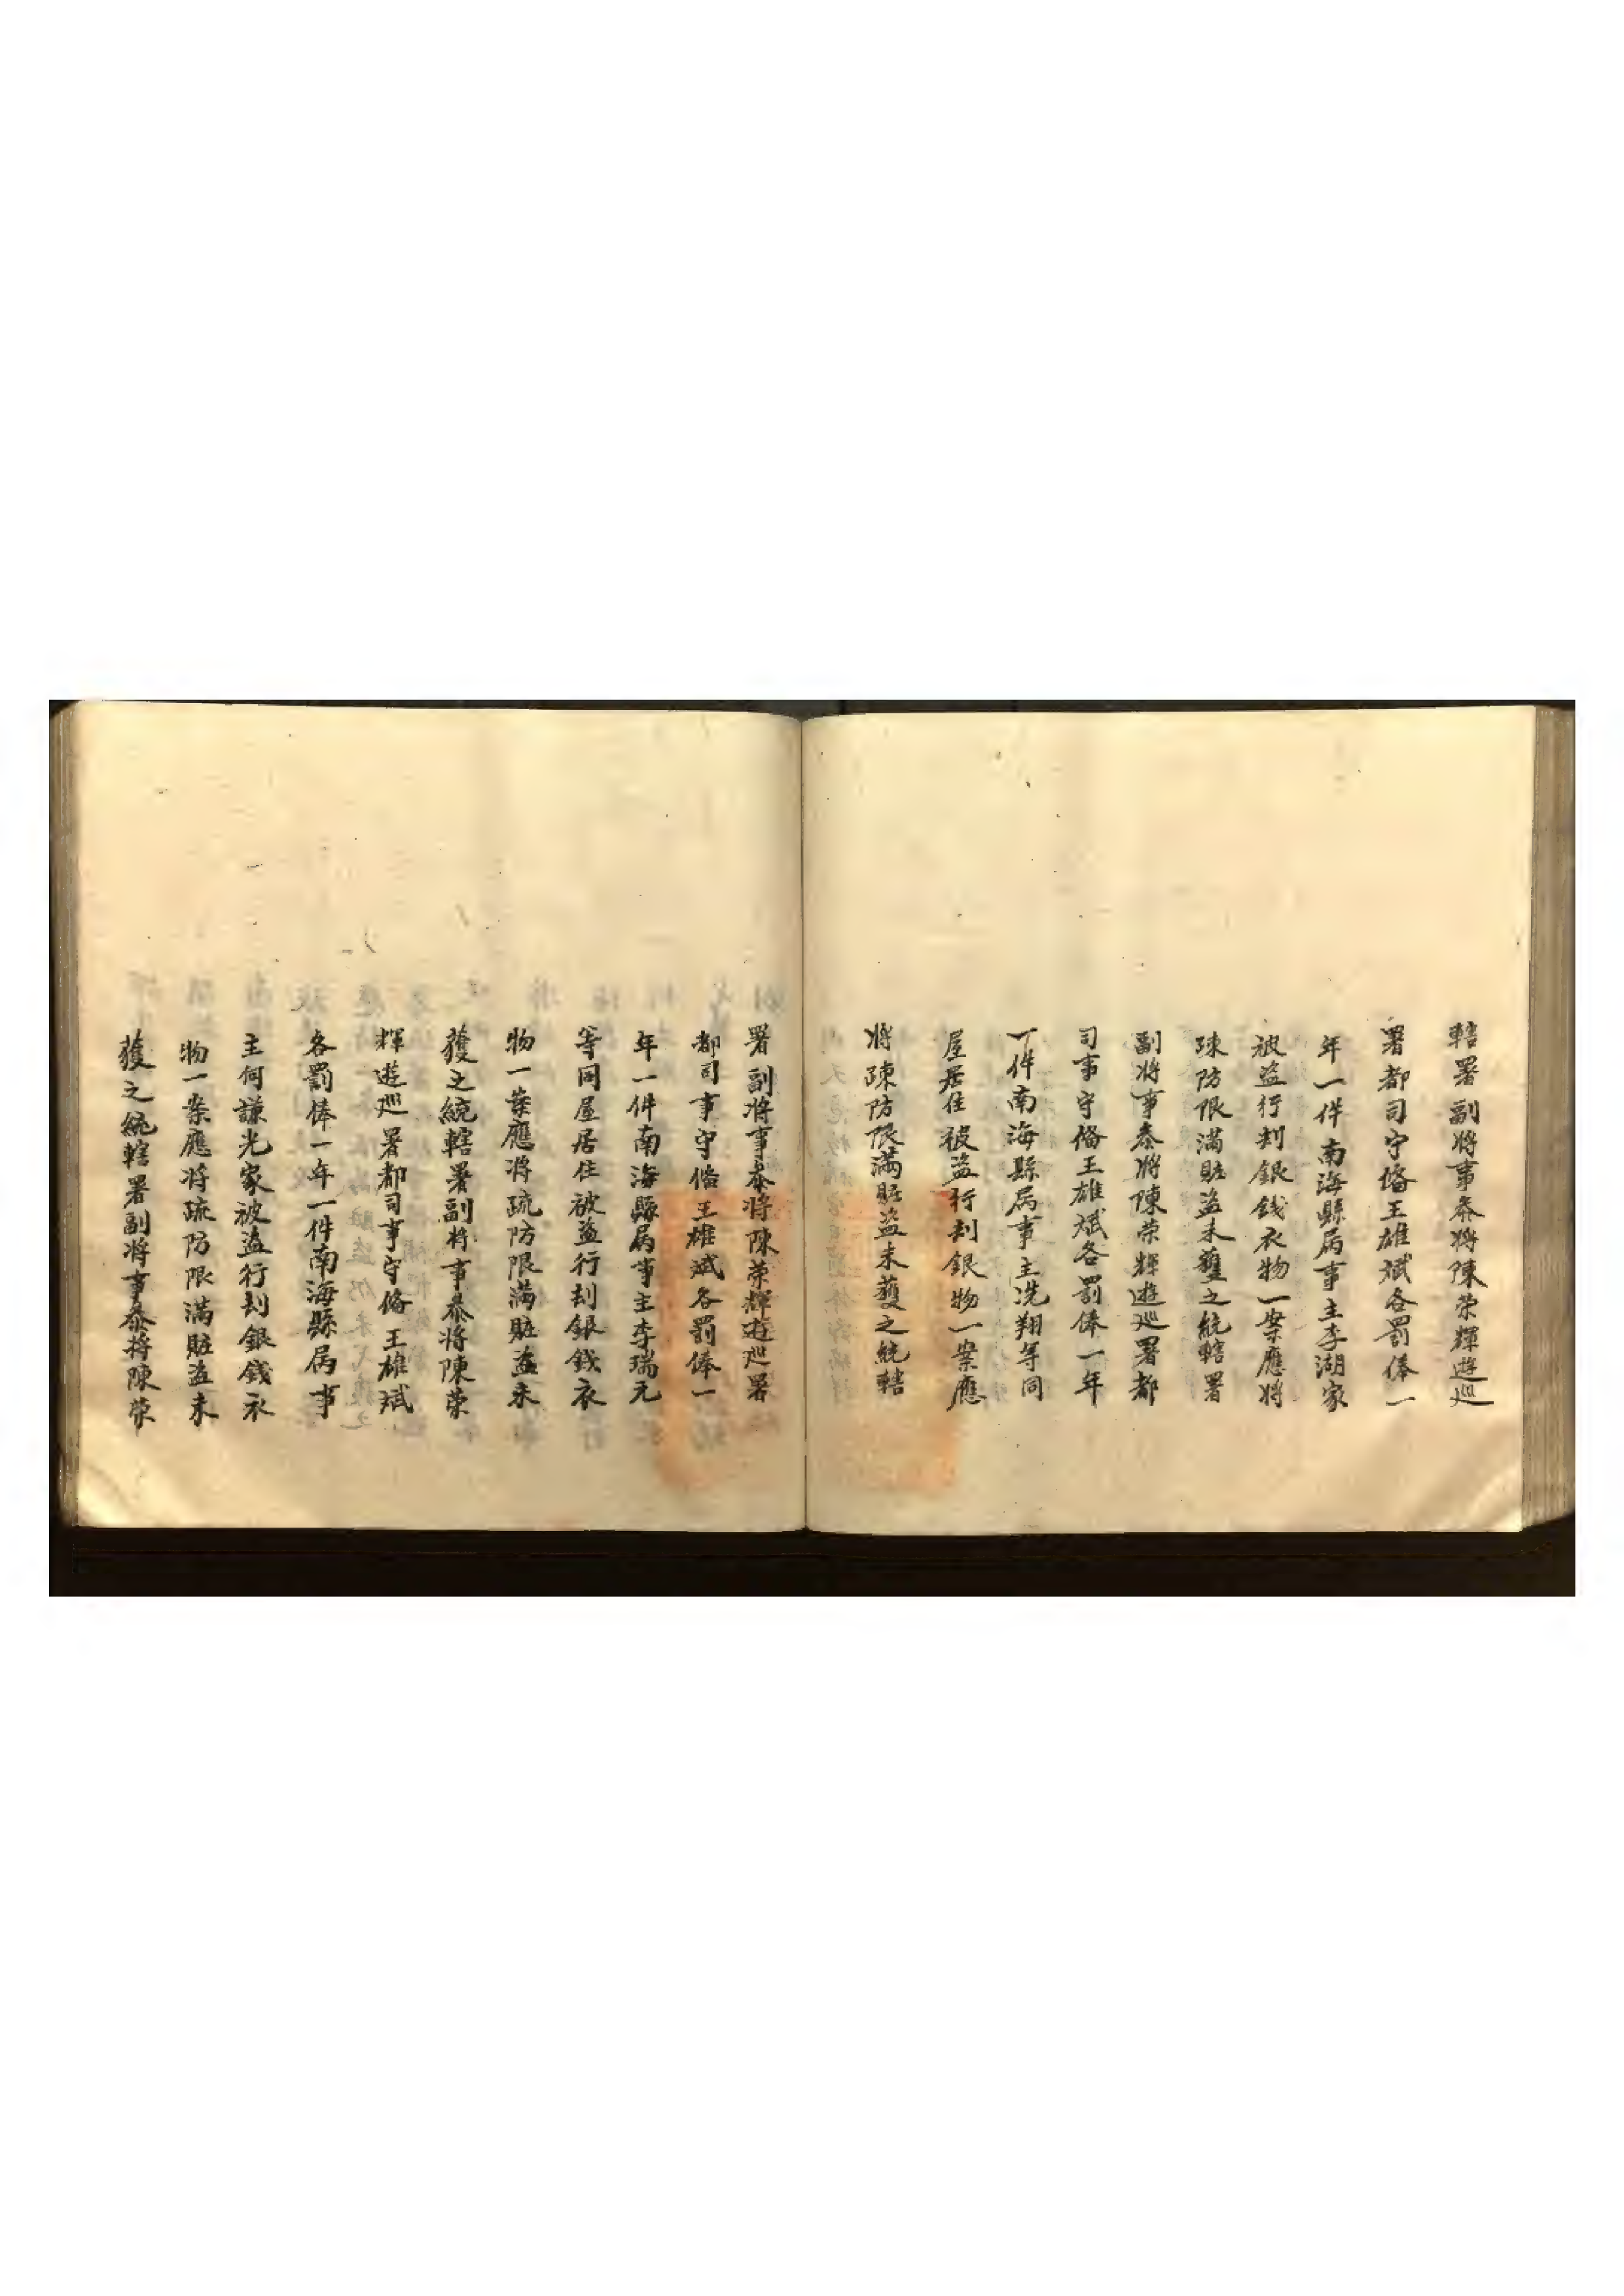 轄署副將事叅將陳荣輝遊巡
署都司守俻王雄斌各罰俸一
年一件南海縣屆事主李湖家
被盜行刦銀錢衣物一案應將
踈防限滿賍盜未獲之統轄署
副將事叅將陳荣輝遊巡署都
司事守俻王雄斌各罰俸一年
一件南海縣屆事主冼翔等同
屋居住被盜行刦銀物一案應
將踈防限滿賍盜未獲之統轄
署副將事叅將陳荣輝遊巡署
都司事守俻王雄斌各罰俸一
年一件南海縣屆事主李瑞元
等同屋居住被盜行刦銀錢衣
物一案應將疏防限滿賍盜未
獲之統轄署副將事叅將陳荣
輝遊巡署都司事守俻王雄斌
各罰俸一年一件南海縣屆事
主何謙光家被盜行刦銀錢衣
物一案應將疏防限滿賍盜未
獲之統轄署副將事叅將陳荣